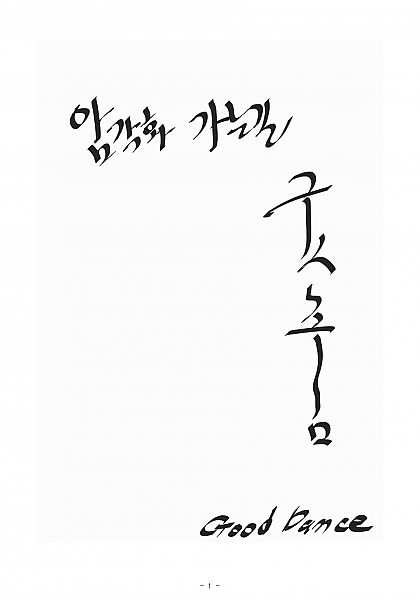 암각화 가는길
굿춤
Good Dance
- 1 -